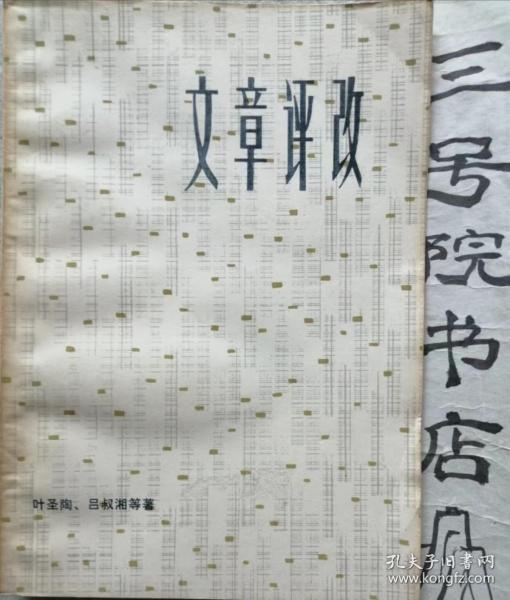 文章评改
叶圣陶、吕叔湘等著
三号院书店
孔夫子旧书网
www.kongfz.com